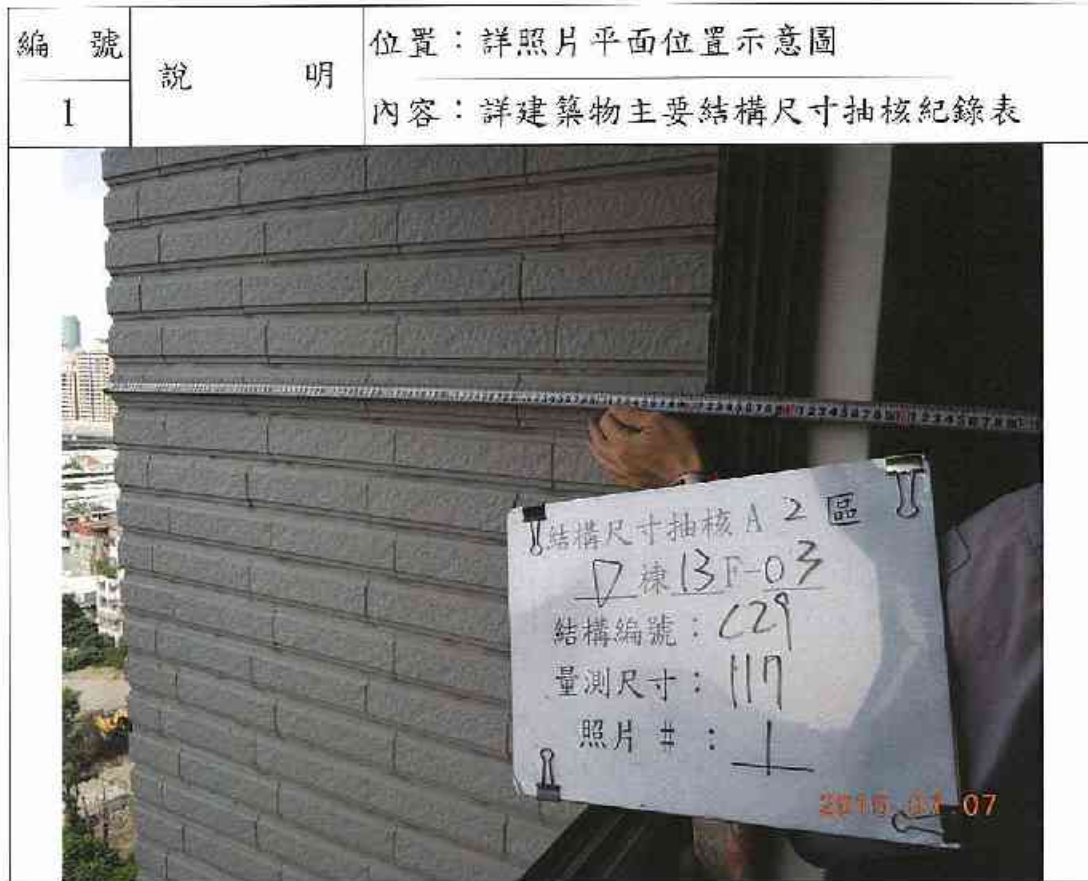 編號
1
說明
位置：詳照片平面位置示意圖
內容：詳建築物主要結構尺寸抽核紀錄表
結構尺寸抽核 A 2 區
D 棟 13F-03
結構編號：C29
量測尺寸：117
照片 #：1